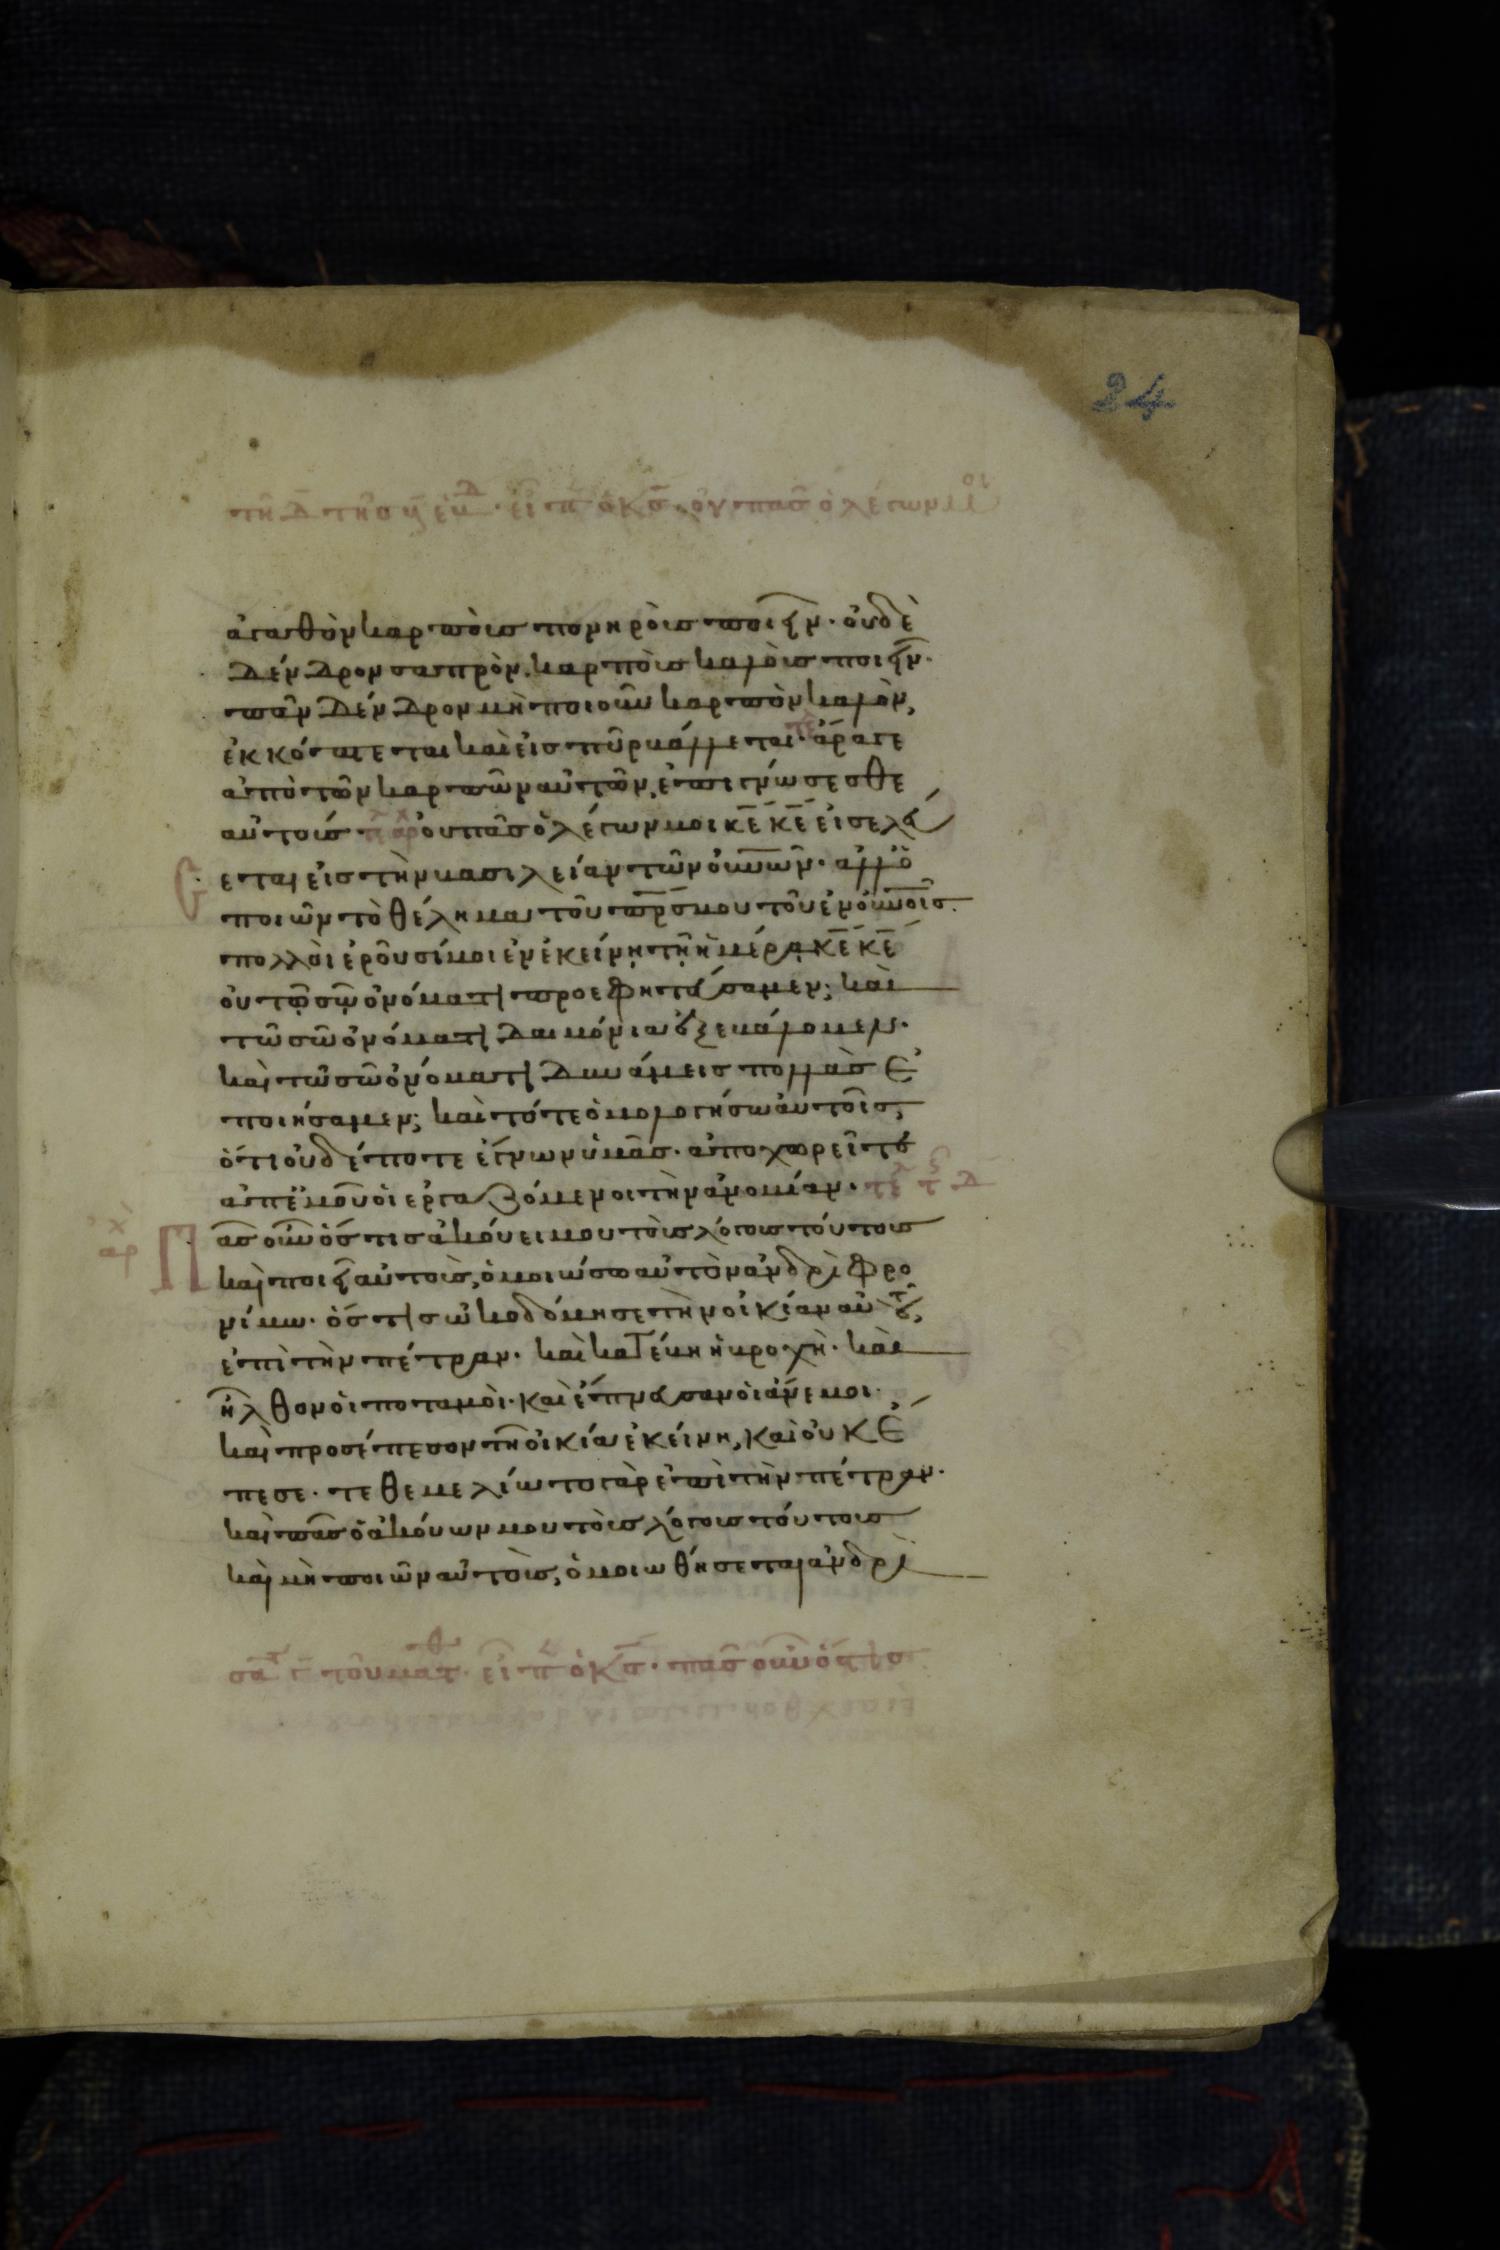 24
τῆ δ τῆς η ἑβδ. εἶπ ὁ κς. οὐ πᾶς ὁ λέγων μοι
ἀγαθὸν καρποὺς πονηροὺς ποιεῖν. οὐδὲ
δένδρον σαπρὸν. καρποὺς καλοὺς ποιεῖν.
πᾶν δένδρον μὴ ποιοῦν καρπὸν καλὸν,
ἐκκόπτεται καὶ εἰς πῦρ βάλλεται. ἄραγε
ἀπὸ τῶν καρπῶν αὐτῶν, ἐπιγνώσεσθε
αὐτούς. οὐ πᾶς ὁ λέγων μοι κε κε εἰσελεύ
εται εἰς τὴν βασιλείαν τῶν οὐνῶν. ἀλλ ὁ
ποιῶν τὸ θέλημα τοῦ πρς μου τοῦ ἐν οὐνοῖς.
πολλοὶ ἐροῦσί μοι ἐν ἐκείνῃ τῇ ἡμέρᾳ κε κε
οὐ τῷ σῷ ὀνόματι προεφητεύσαμεν; καὶ
τῶ σῶ ὀνόματι δαιμόνια ἐξεβάλομεν.
καὶ τῶ σῶ ὀνόματι δυνάμεις πολλὰς ἐ
ποιήσαμεν; καὶ τότε ὁμολογήσω αὐτοῖς,
ὅτι οὐδέποτε ἔγνων ὑμᾶς. ἀποχωρεῖτε
ἀπ ἐμοῦ οἱ ἐργαζόμενοι τὴν ἀνομίαν.
αρχ Πᾶς οὖν ὅστις ἀκούει μου τοὺς λόγους τούτους
καὶ ποιεῖ αὐτοὺς, ὁμοιώσω αὐτὸν ἀνδρὶ φρο
νίμω. ὅστις ὠκοδόμησε τὴν οἰκίαν αὐτοῦ,
ἐπὶ τὴν πέτραν. καὶ κατέβη ἡ βροχὴ. καὶ
ἦλθον οἱ ποταμοὶ. καὶ ἔπνευσαν οἱ ἄνεμοι.
καὶ προσέπεσον τῆ οἰκία ἐκείνη, καὶ οὐκ ἔ
πεσε. τεθεμελίωτο γὰρ ἐπὶ τὴν πέτραν.
καὶ πᾶς ὁ ἀκούων μου τοὺς λόγους τούτους
καὶ μὴ ποιῶν αὐτοὺς, ὁμοιωθήσεται ἀνδρὶ
σα γ τοῦ ματθ. εἶπ ὁ κς. πᾶς οὖν ὅστις